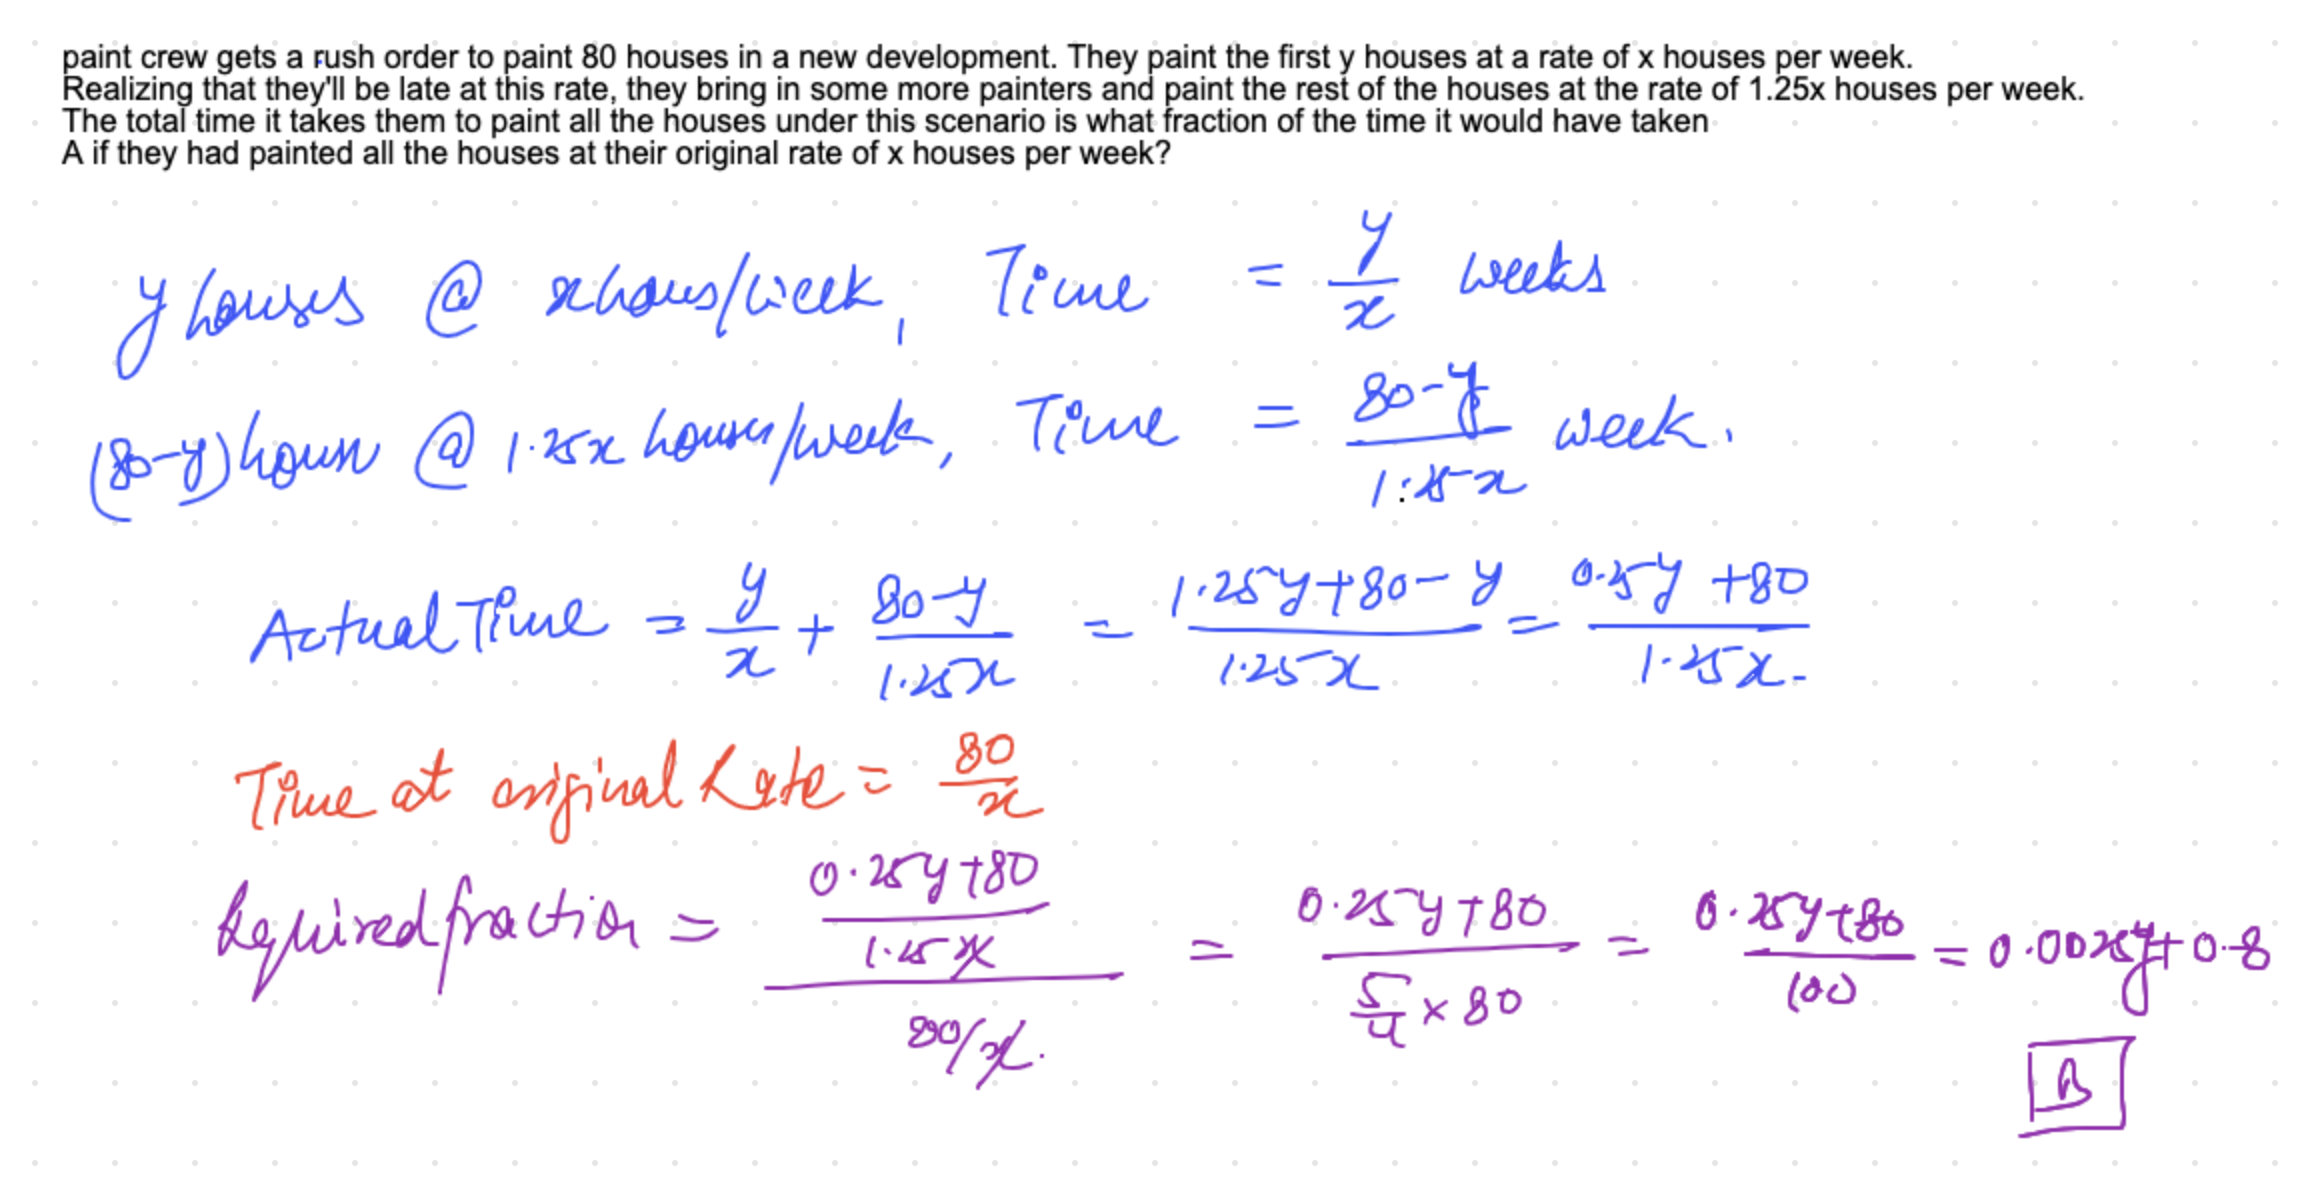 paint crew gets a rush order to paint 80 houses in a new development. They paint the first y houses at a rate of x houses per week.
Realizing that they'll be late at this rate, they bring in some more painters and paint the rest of the houses at the rate of 1.25x houses per week.
The total time it takes them to paint all the houses under this scenario is what fraction of the time it would have taken
A if they had painted all the houses at their original rate of x houses per week?
y houses @ x houses/week, Time = y/x weeks
(80-y) houses @ 1.25x houses/week, Time = (80-y)/(1.25x) week.
Actual Time = y/x + (80-y)/(1.25x) = (1.25y+80-y)/(1.25x) = (0.25y+80)/(1.25x)
Time at original Rate = 80/x
Required fraction = ((0.25y+80)/(1.25x))/(80/x) = (0.25y+80)/(5/4 × 80) = (0.25y+80)/100 = 0.0025y+0.8
B